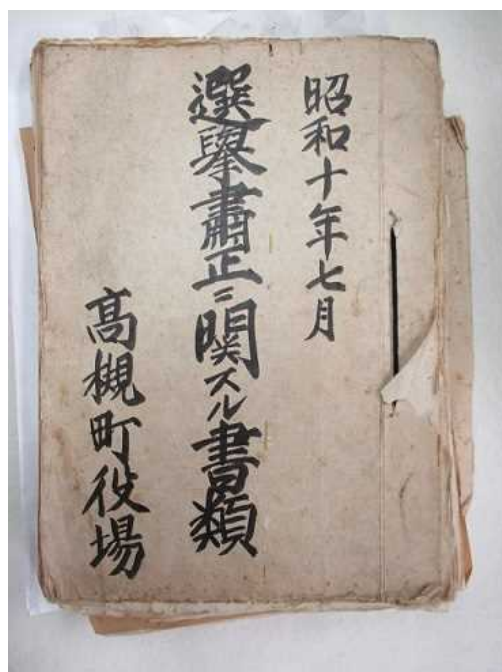 昭和十年七月
選擧肅正ニ関スル書類
高槻町役場